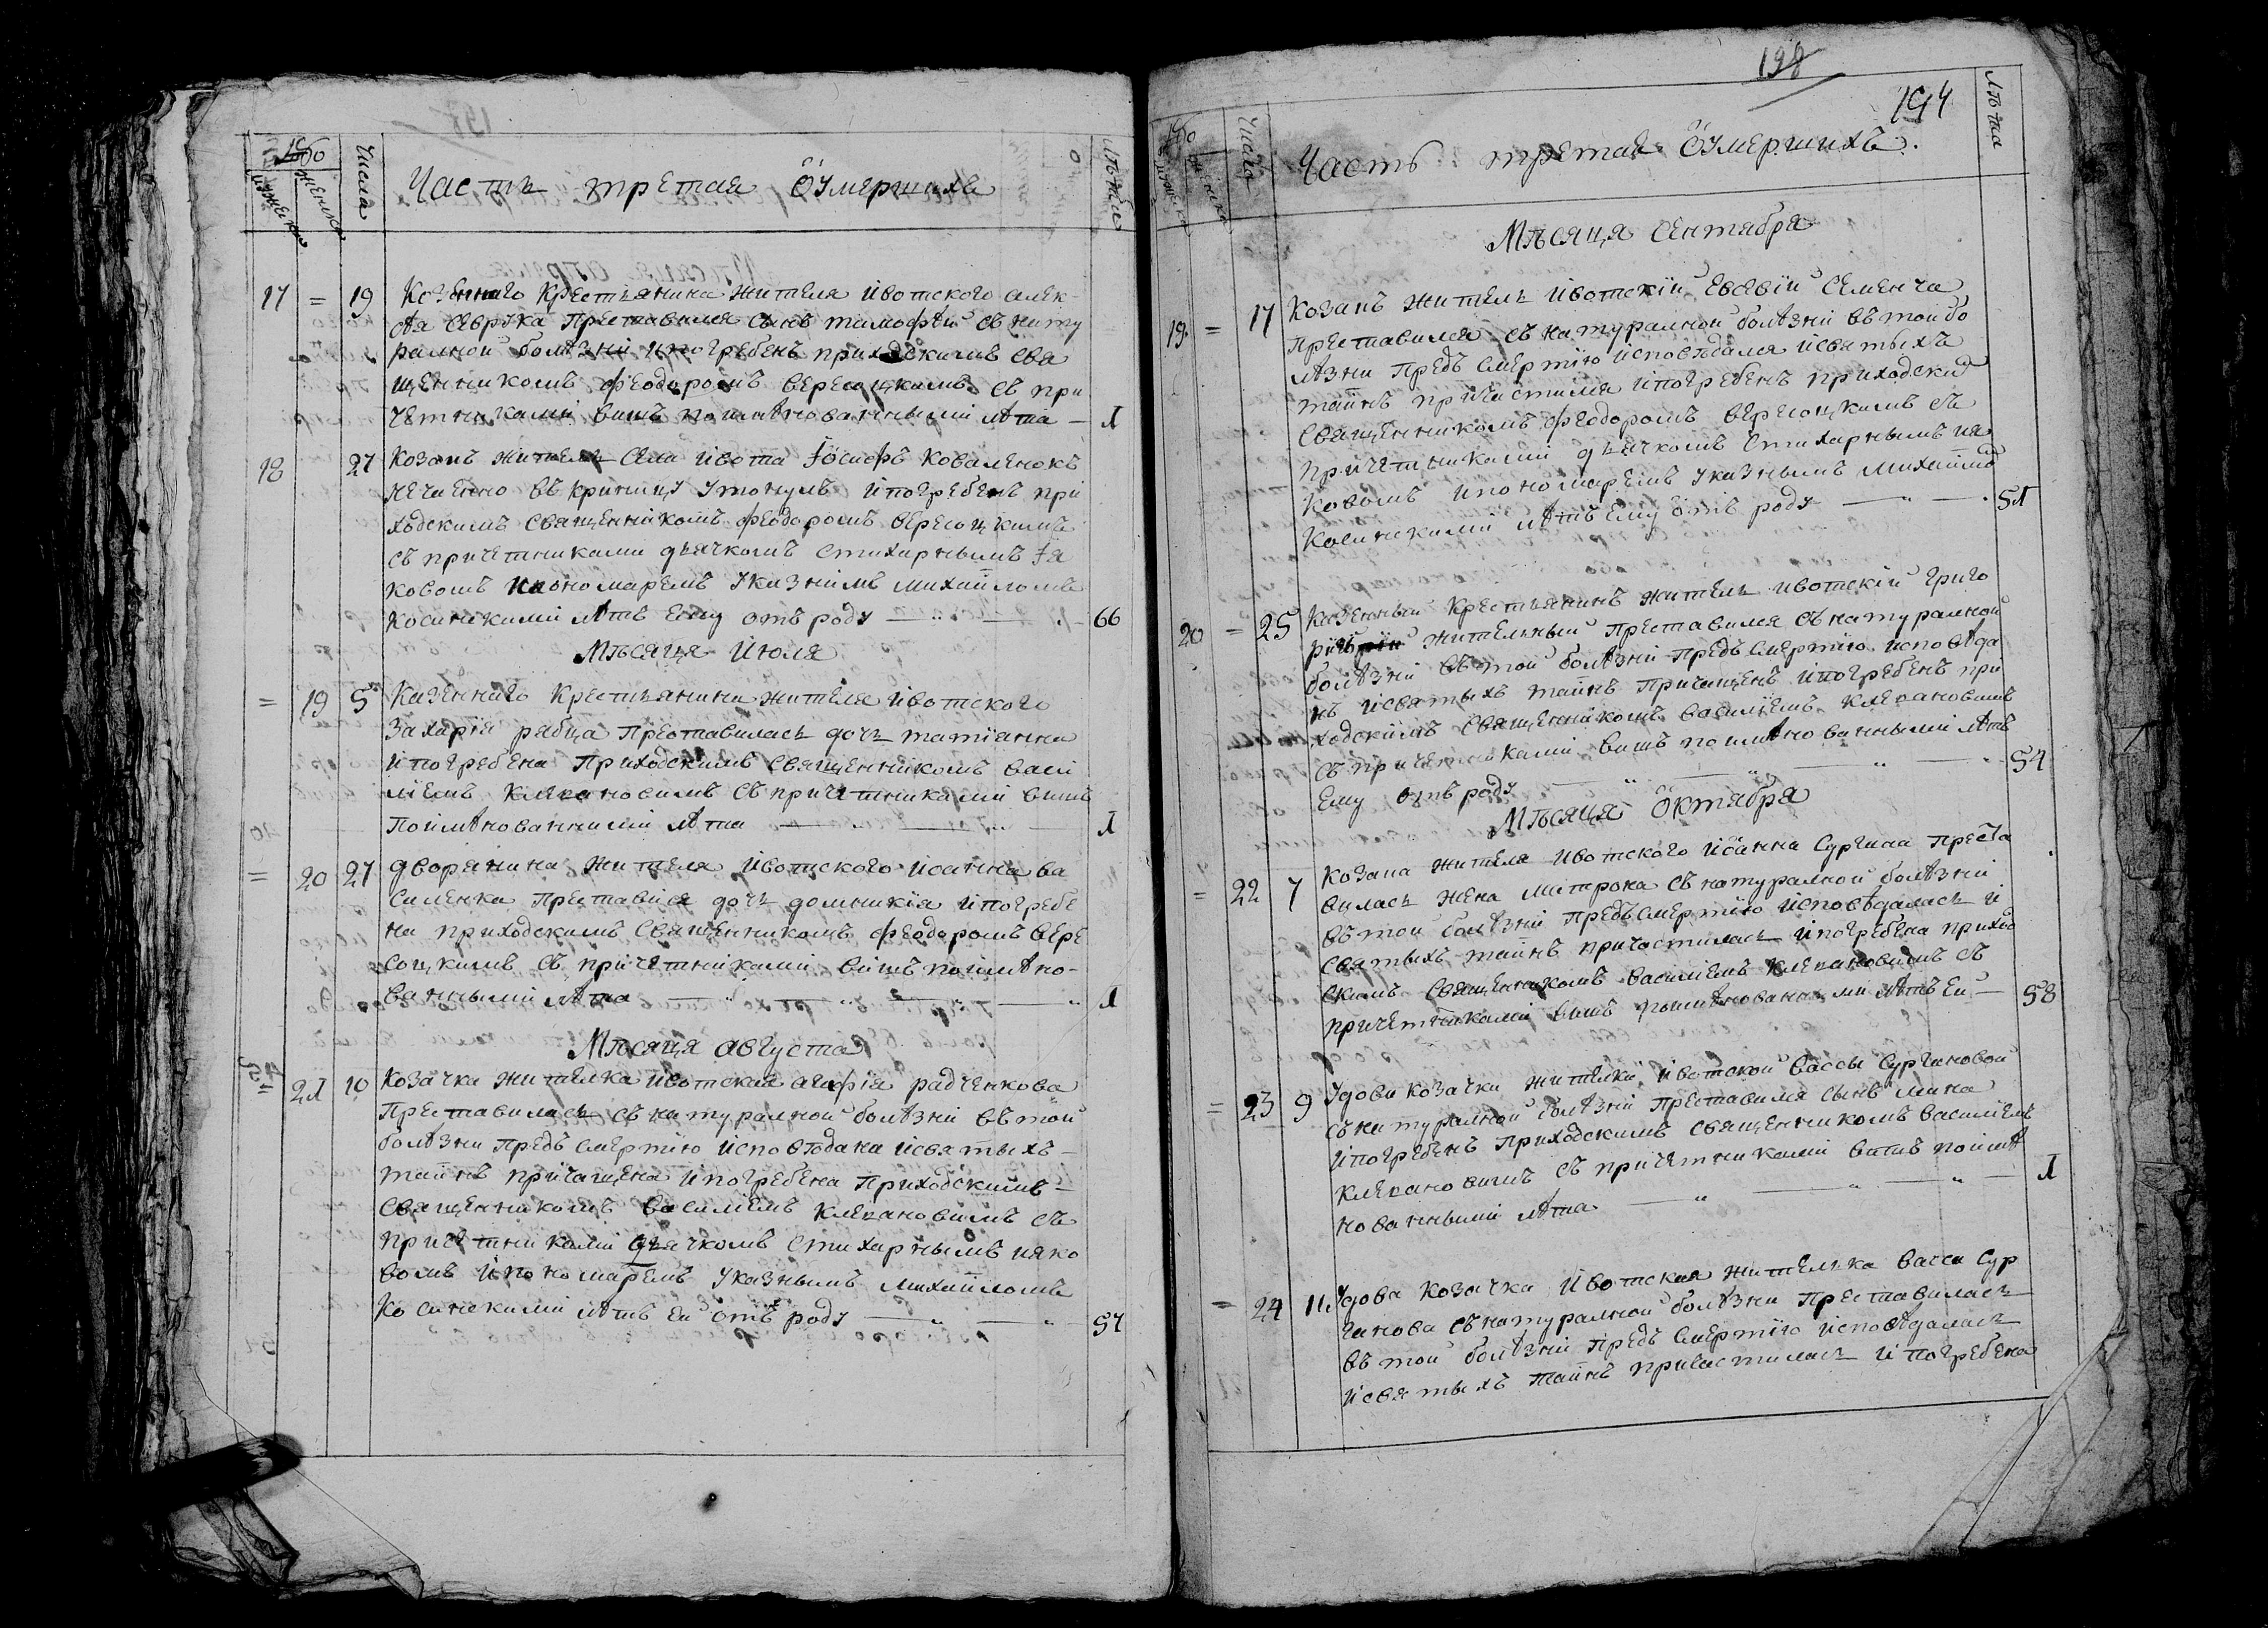 Числа
Часть третая ö умершихъ
Лѣта
17 = 19 Козенного Крестьянина жителя ивотского алек
сѣя Севрука Преставился сынъ тимофѣй съ нату
ралной болѣзни и погребенъ приходскимъ свя
щенникомъ феодоромъ вересоцкимъ съ при
четниками вишъ поимѣнованными лѣта — 1
18 27 Козакъ житель села ивота Іосифъ Коваленокъ
нечаенно въ криницу утонулъ и погребенъ при
ходскимъ священникомъ феодоромъ вересоцкимъ
съ причетниками дьячкомъ стихарнымъ Iя
ковомъ и пономаремъ указнимъ михайломъ
косинскими лѣтъ ему отъ роду — 66
Мѣсяца Июля
= 19 5 Казенного крестьянина жителя ивотского
Захарія рябца Преставилась дочь татіанна
и погребена Приходскимъ священникомъ васи
лiемъ клепановимъ съ причетниками вишъ
Поимѣнованними лѣта — 1
= 20 27 дворянина жителя ивотского иоанна ва
силенка Преставися дочь домникія и погребе
на приходскимъ священникомъ феодоромъ вере
соцкимъ съ причетниками вишъ поимѣно-
ванными лѣта — 1
Мѣсяца августа
= 21 10 Козачка жителка ивотская агафія радченкова
Преставилась съ натуралной болѣзни въ той
болѣзни предъ смертію исповѣдана и святыхъ
тайнъ причащена и погребена Приходскимъ
священникомъ василіемъ клепановимъ съ
причетниками дьячкомъ стихарнымъ ияко
вомъ и пономаремъ указнымъ михайломъ
косинскими лѣтъ ей отъ роду — 57
198
194
Числа
Часть третая ö умершихъ.
Лѣта
Мѣсяца сентября
19 = 17 Козакъ житель ивотскій евсевій семенча
преставился съ натуралной болѣзни въ той бо
лѣзни предъ смертію исповѣдался и святыхъ
тайнъ причастился и погребенъ приходски
священникомъ феодоромъ вересоцкимъ съ
причетниками дьячкомъ стихарнымъ ия
ковомъ и пономаремъ указнымъ михайло
косинскими лѣтъ ему отъ роду — 51
20 = 25 Казенный крестьянинъ житель ивотскій григо
рій жительный преставился съ натуралной
болѣзни въ той болѣзни предъ смертію исповѣда
нъ и святыхъ тайнъ причащенъ и погребенъ при
ходскимъ священникомъ василіемъ клепановимъ
съ причетниками вишъ поимѣнованными лѣтъ
ему отъ роду — 54
Мѣсяца Октября
= 22 7 Козака жителя ивотского иоанна Сургина преста
вилась жена матрона съ натуралной болѣзни
въ той болѣзни предъ смертію исповѣдалась и
святыхъ тайнъ причастилась и погребена приход
скимъ священникомъ василіемъ клепановимъ съ
причетниками вишъ поимѣнованными лѣтъ ей — 58
= 23 9 Удови козачки жителки ивотской вассы Сургановой
съ натуралной болѣзни преставился сынъ мина
и погребенъ Приходскимъ священникомъ василіемъ
клепановимъ съ причетниками вишъ поимѣ
нованными лѣта — 1
= 24 11 Удова козачка ивотская жителька васса Сур
ганова съ натуралной болѣзни преставилась
въ той болѣзни предъ смертію исповѣдалась
и святыхъ тайнъ причастилась и погребена